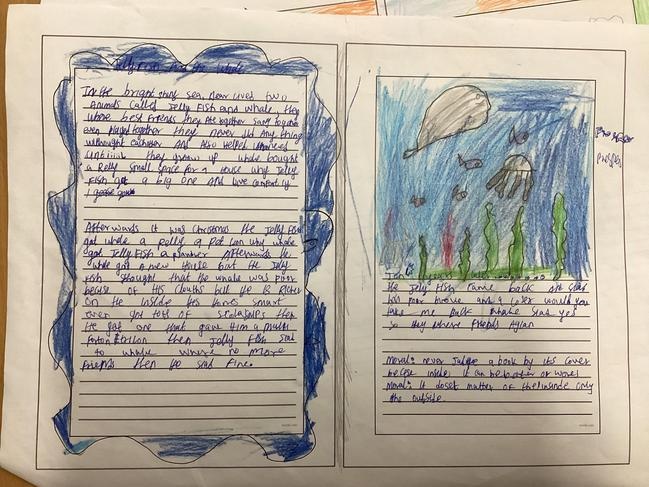 Jelly Fish And the Whale
In the bright shiny sea, there lived two
Animals called Jelly Fish and whale, they
whare best friends they Ate together sang together
even played together they never did Any thing
withought eachother and Also helped
untiiiil they grew up whale bought
a Relly small space for a House why Jelly
Fish got a big one and live comfortly
Afterwards it was Christmas the Jelly Fish
got whale a relly a Pot Lion why whale
got Jelly Fish a Afterwards the
whale got A new House but the Jelly
Fish thought that the whale was poor
becuse of His but He is Richer
On the inside His smart
even got lots of then
He got one that gave Him a
then Jelly Fish said
to whale where no more
Friends then He said Fine.
Ten years
the Jelly Fish came back and said
his poor and a Loser would you
take me back whale said yes
so they where Friends Agian
Moral: never Judge a book by its cover
becuse inside it can be better or worse
Moral: it doset matter of the inside only
the outside.